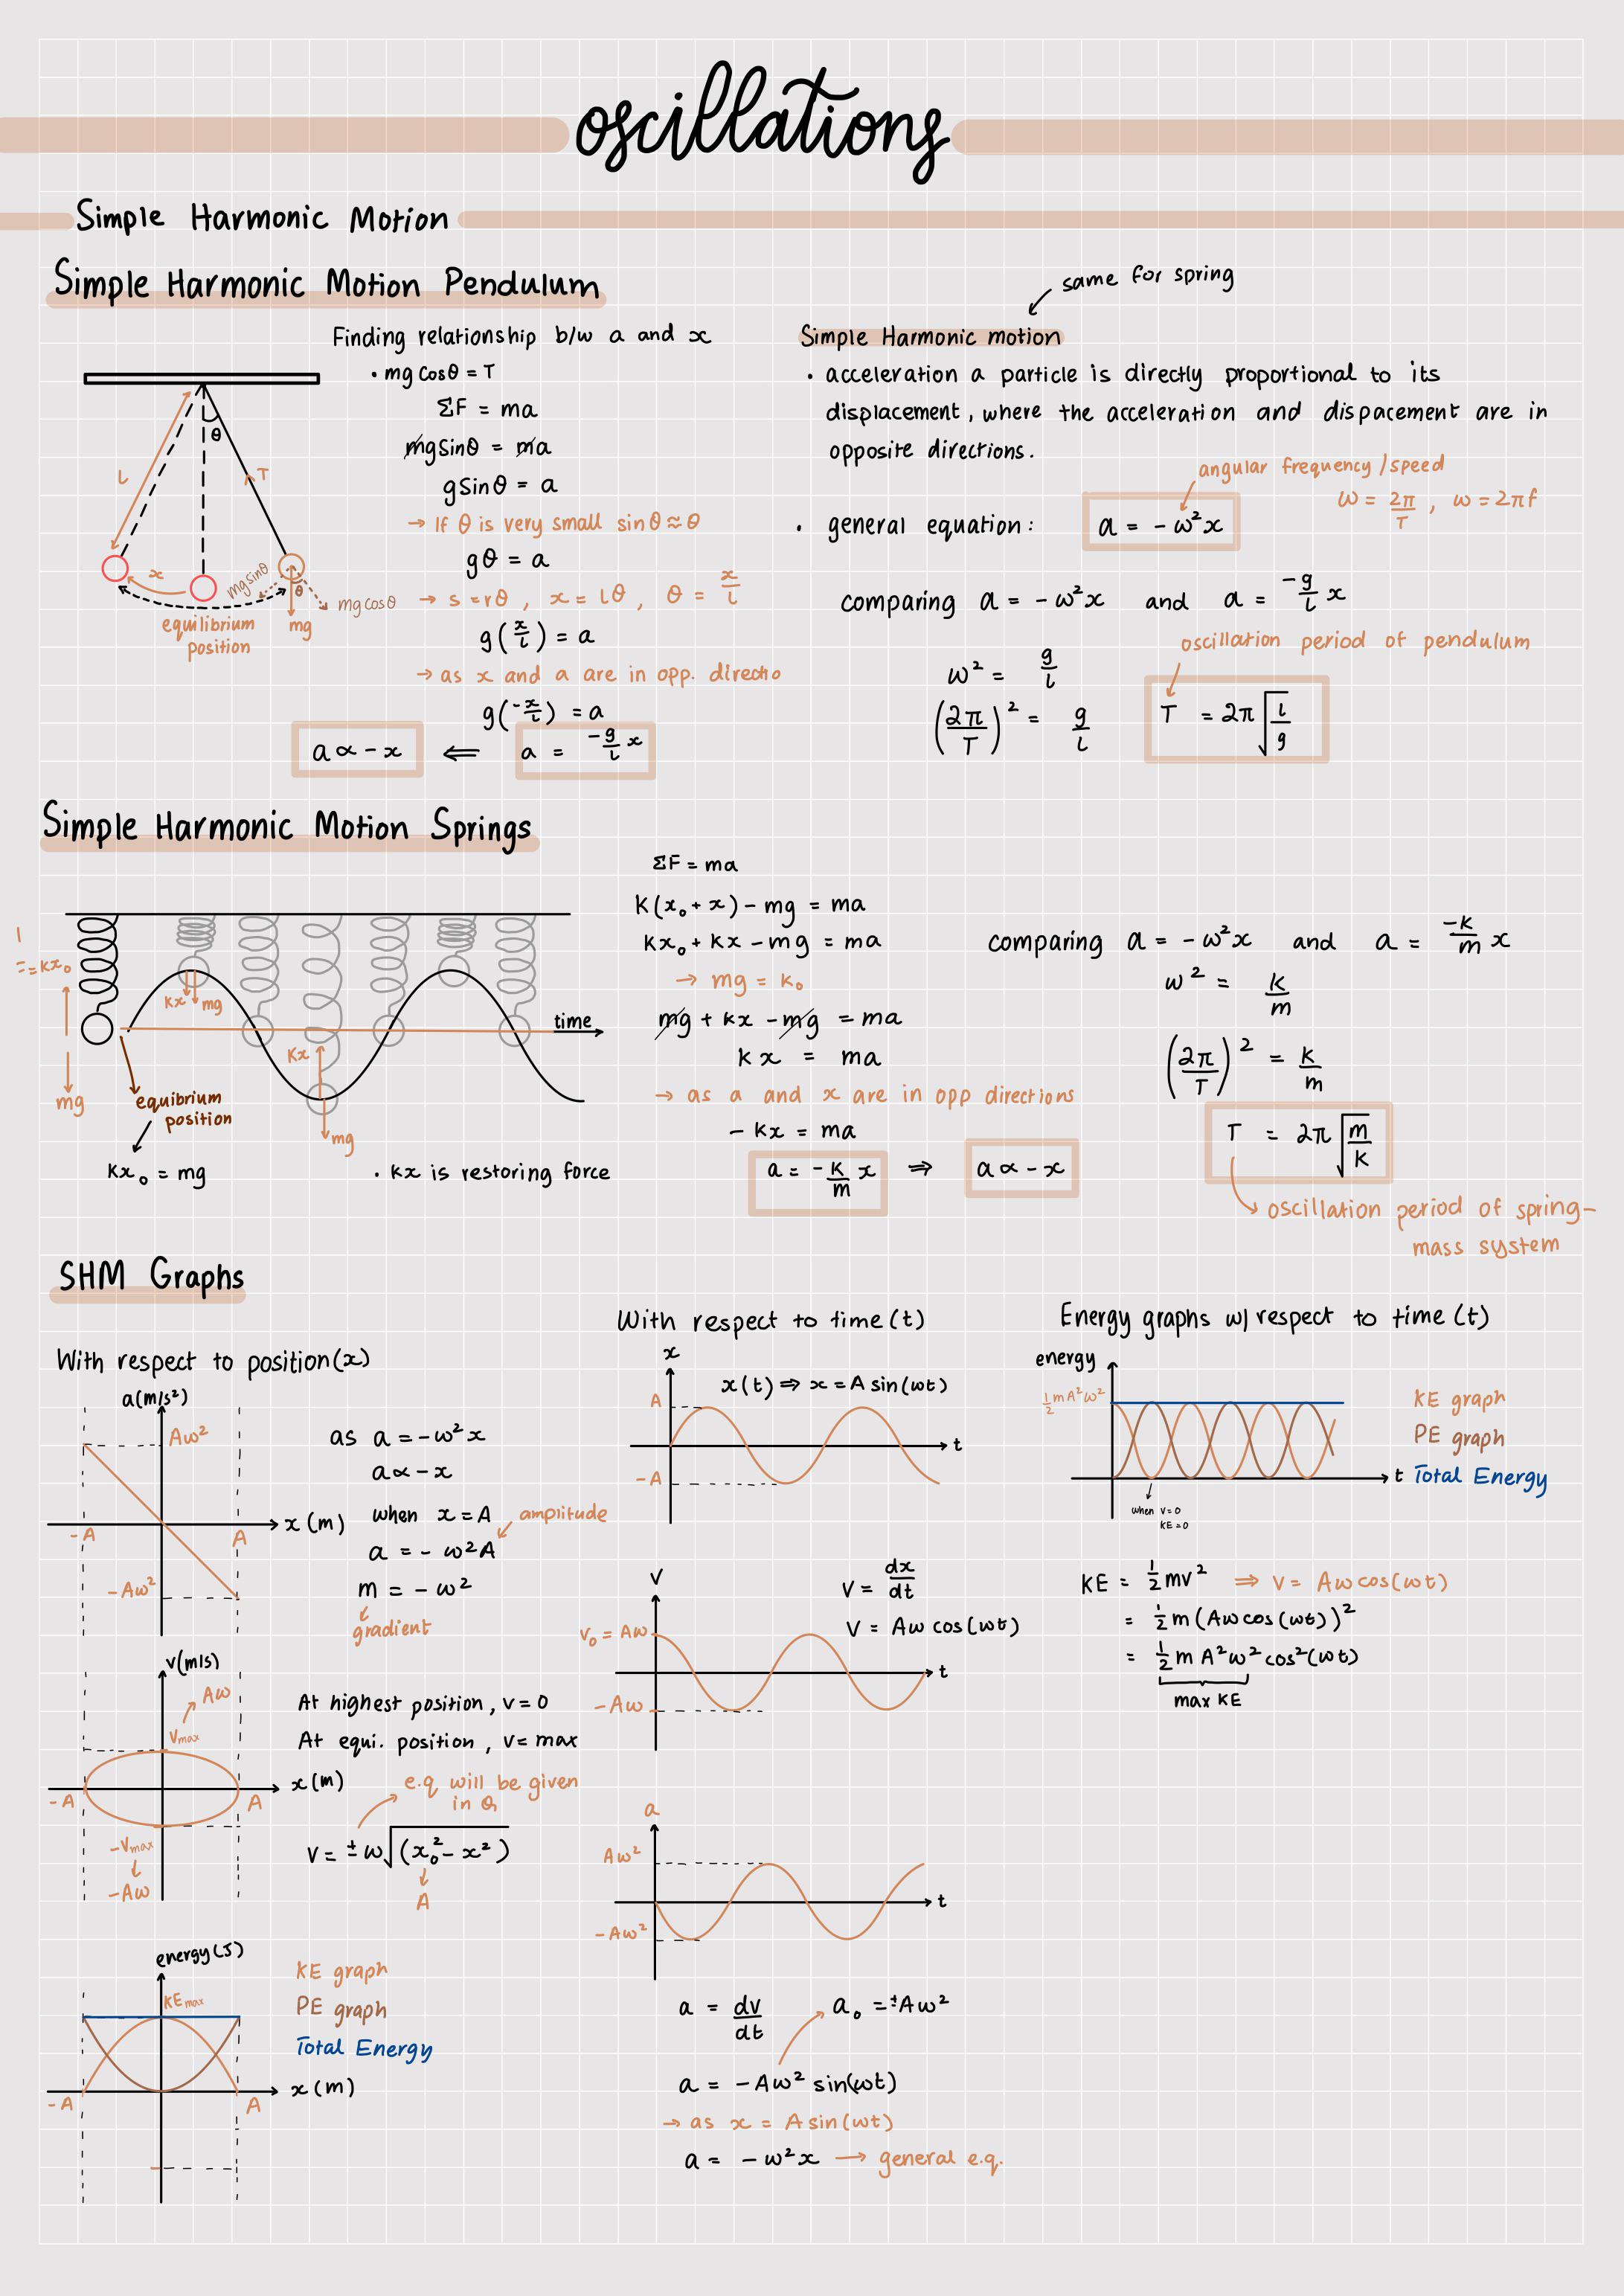 oscillations
Simple Harmonic Motion
Simple Harmonic Motion Pendulum
Finding relationship b/w a and x
• mg Cosθ = T
ΣF = ma
mgSinθ = ma
gSinθ = a
→ If θ is very small sinθ ≈ θ
gθ = a
→ s = rθ , x = lθ , θ = x/l
g(x/l) = a
→ as x and a are in opp. directio
g(-x/l) = a
a ∝ -x ⟸ a = -g/l x
θ
l
T
x
mgsinθ
θ
mgcosθ
equilibrium
position
mg
same for spring
Simple Harmonic motion
• acceleration a particle is directly proportional to its
displacement, where the acceleration and dispacement are in
opposite directions.
angular frequency/speed
• general equation: a = -ω²x
ω = 2π/T , ω = 2πf
comparing a = -ω²x and a = -g/l x
oscillation period of pendulum
ω² = g/l
(2π/T)² = g/l
T = 2π√(l/g)
Simple Harmonic Motion Springs
= kx₀
mg
kx mg
kx
mg
time
equibrium
position
kx₀ = mg
• kx is restoring force
ΣF = ma
K(x₀ + x) - mg = ma
kx₀ + kx - mg = ma
→ mg = k₀
mg + kx - mg = ma
kx = ma
→ as a and x are in opp directions
- kx = ma
a = -k/m x ⇒ a ∝ -x
comparing a = -ω²x and a = -k/m x
ω² = k/m
(2π/T)² = k/m
T = 2π√(m/k)
oscillation period of spring-
mass system
SHM Graphs
With respect to position(x)
a(m/s²)
Aω²
-A
A
x(m)
-Aω²
as a = -ω²x
a ∝ -x
when x = A
amplitude
a = - ω²A
m = - ω²
gradient
v(m/s)
Aω
Vmax
-A
A
x(m)
-Vmax
-Aω
At highest position, v = 0
At equi. position, v = max
e.q will be given
in Q
V = ±ω√(x₀² - x²)
A
energy(J)
KEmax
-A
A
x(m)
KE graph
PE graph
Total Energy
With respect to time(t)
x
x(t) ⇒ x = A sin(ωt)
A
t
-A
V
V = dx/dt
V = Aω cos(ωt)
V₀ = Aω
t
-Aω
a
Aω²
t
-Aω²
a = dv/dt
a₀ = ±Aω²
a = -Aω² sin(ωt)
→ as x = A sin(ωt)
a = - ω²x → general e.q.
Energy graphs w/ respect to time (t)
energy
½mA²ω²
t
when v=0
KE=0
KE graph
PE graph
Total Energy
KE = ½mv² ⇒ v = Aω cos(ωt)
= ½m(Aω cos(ωt))²
= ½mA²ω² cos²(ωt)
max KE